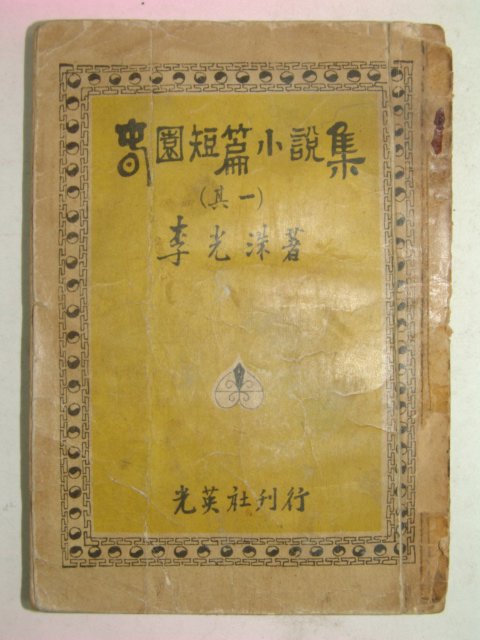 春園短篇小說集
(其一)
李光洙著
光英社刊行